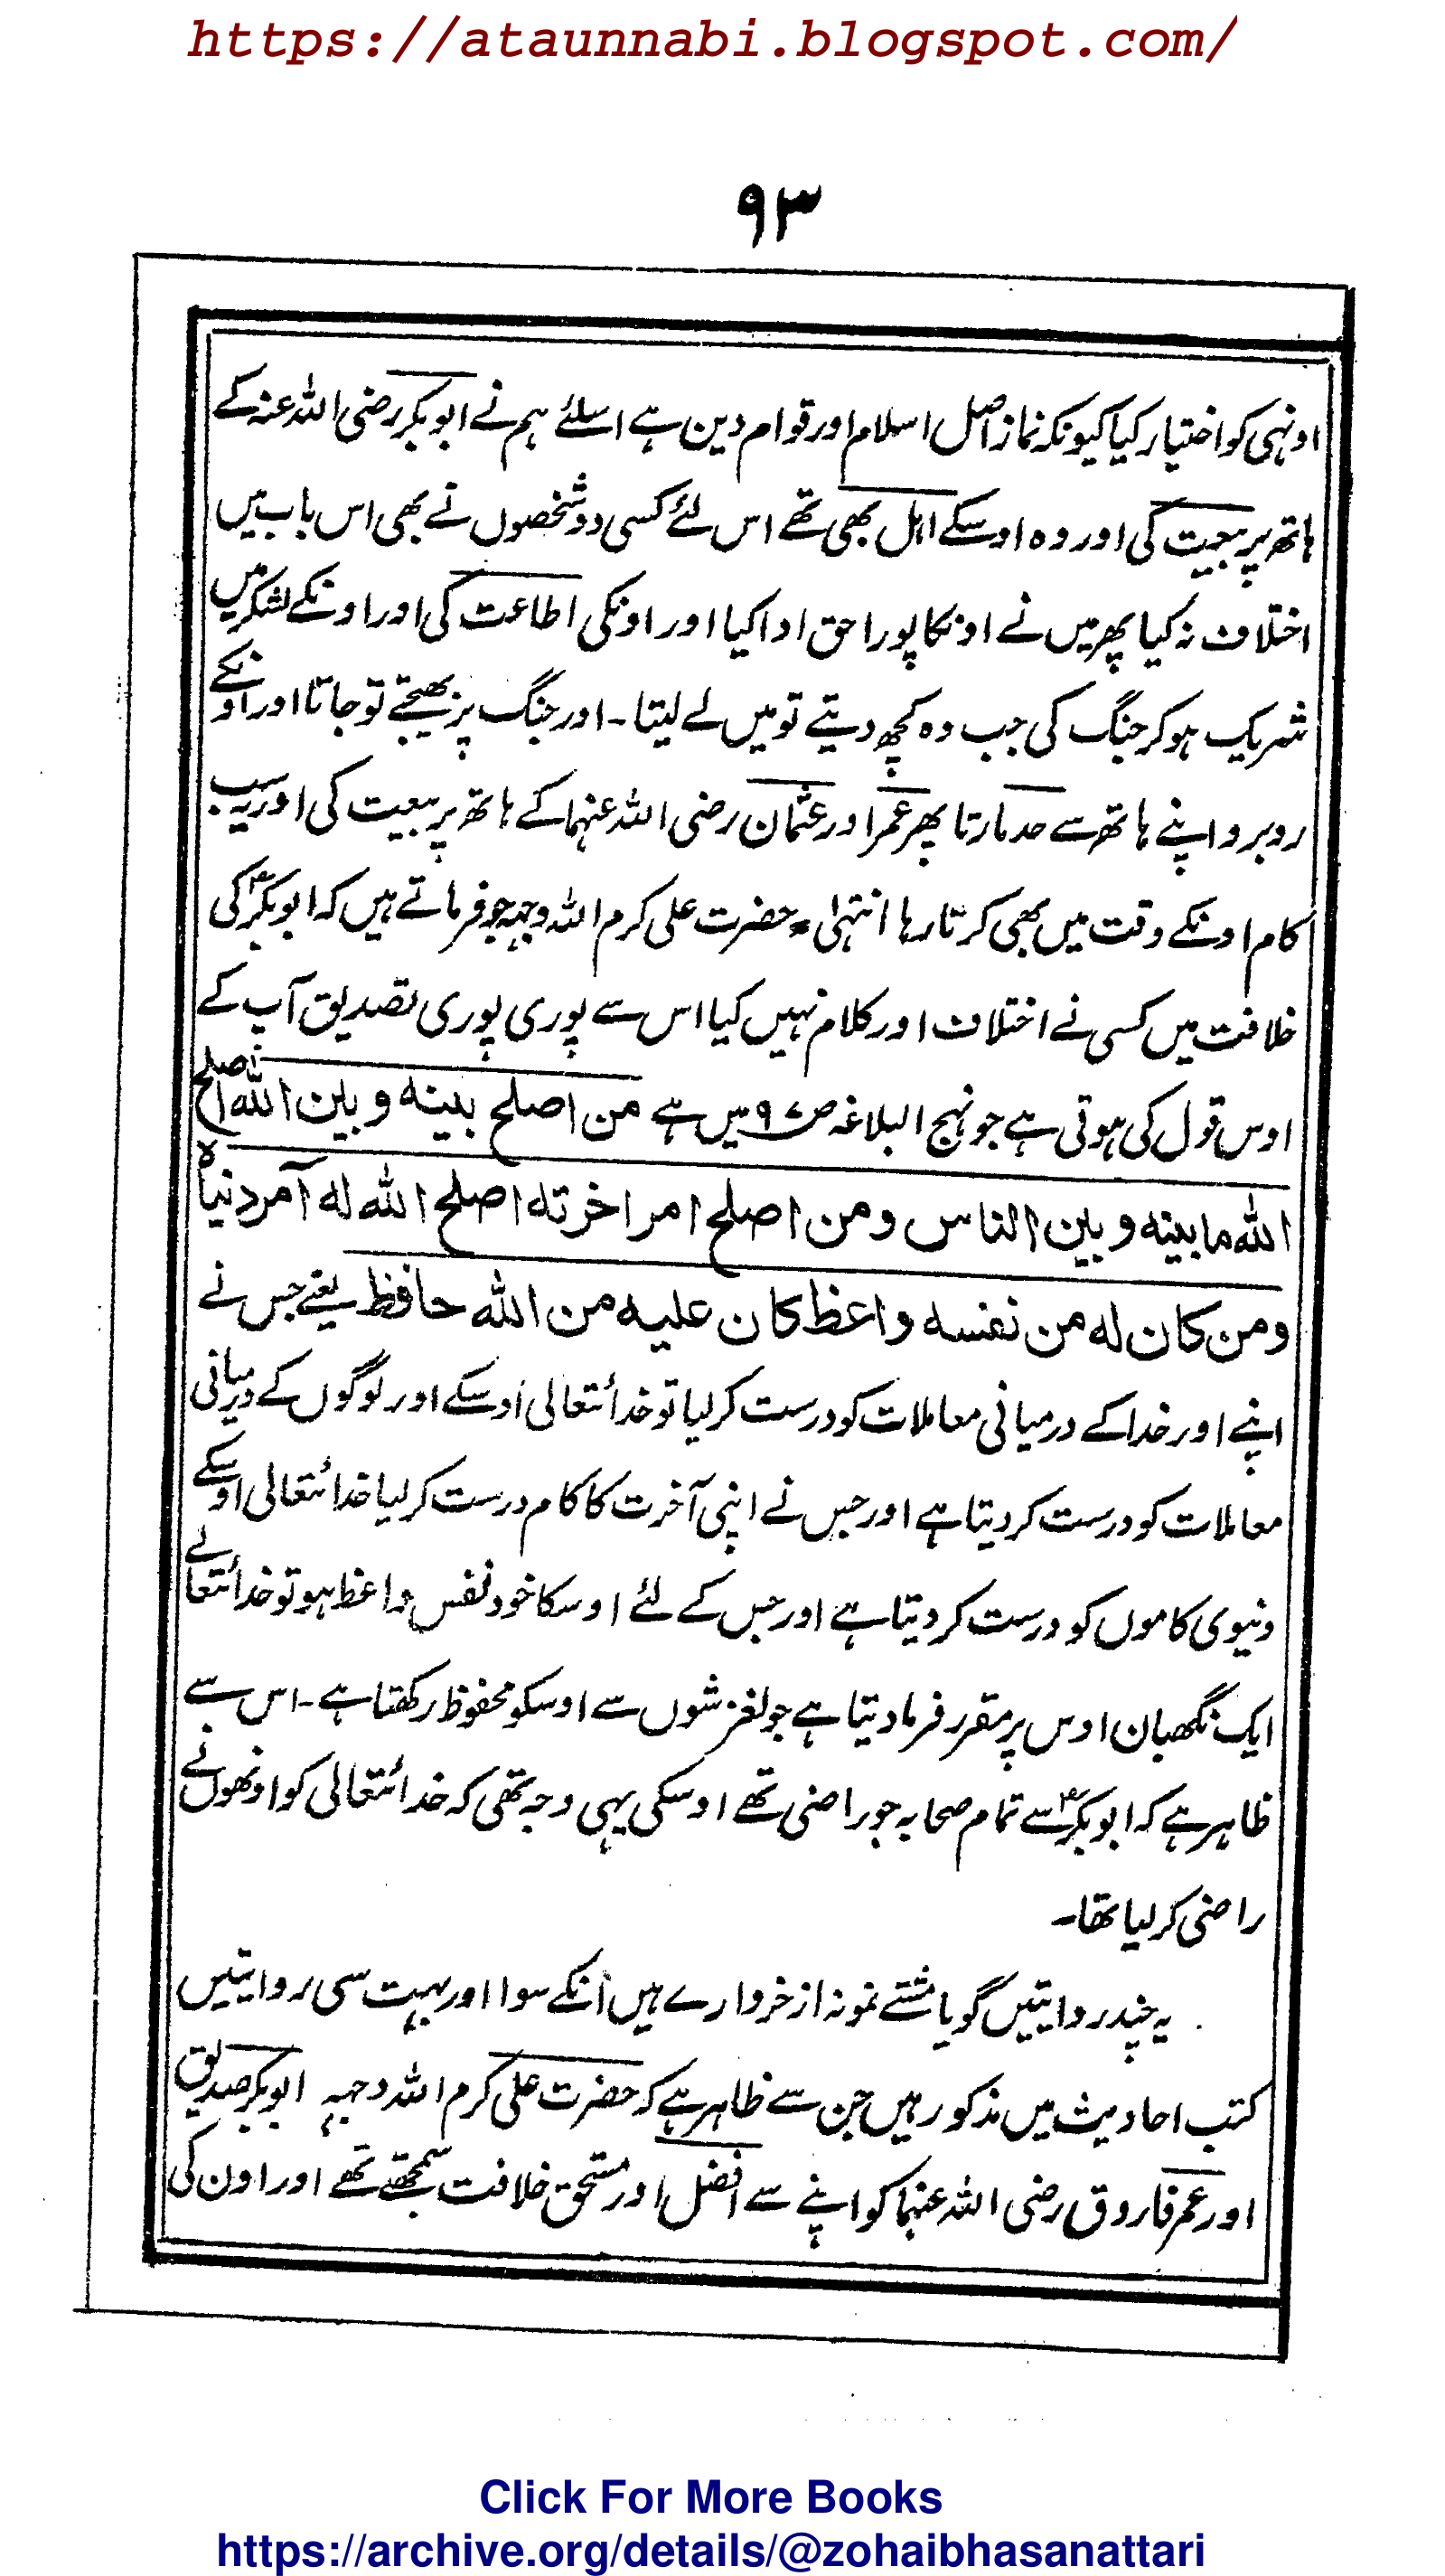 https://ataunnabi.blogspot.com/
۹۳
اونہی کو اختیار کیا کیونکہ نماز اصل اسلام اور قوام دین ہے اسلئے ہم نے ابوبکر رضی اللہ عنہ کے
ہاتھ پر بیعت کی اور وہ اوسکے اہل بھی تھے اس لئے کسی دو شخصوں نے بھی اس باب میں
اختلاف نہ کیا پھر میں نے اونکا پورا حق ادا کیا اور اونکی اطاعت کی اور اونکے لشکر میں
شریک ہو کر جنگ کی جب وہ کچھ دیتے تو میں لے لیتا ۔ اور جنگ پر بھیجتے تو جاتا اور اونکے
روبرو اپنے ہاتھ سے حد مارتا پھر عمر اور عثمان رضی اللہ عنہما کے ہاتھ پر بیعت کی اور یہ سب
کام اونکے وقت میں بھی کرتا رہا انتہٰی ۔ حضرت علی کرم اللہ وجہہ جو فرماتے ہیں کہ ابوبکرؓ کی
خلافت میں کسی نے اختلاف اور کلام نہیں کیا اس سے پوری پوری تصدیق آپ کے
اوس قول کی ہوتی ہے جو نہج البلاغہ ص۹۷ میں ہے من اصلح بینه وبین الله اصلح
الله ما بینه وبین الناس ومن اصلح امر اخرته اصلح الله له آمر دنیاه
ومن کان له من نفسه واعظ کان علیه من الله حافظ یعنے جس نے
اپنے اور خدا کے درمیانی معاملات کو درست کر لیا تو خدائتعالی اُوسکے اور لوگوں کے درمیانی
معاملات کو درست کر دیتا ہے اور جس نے اپنی آخرت کا کام درست کر لیا خدائتعالی اوسکے
دنیوی کاموں کو درست کر دیتا ہے اور جس کے لئے اوسکا خود نفس واعظ ہو تو خدائتعالے
ایک نگھبان اوس پر مقرر فرما دیتا ہے جو لغزشوں سے اوسکو محفوظ رکھتا ہے ۔ اس سے
ظاہر ہے کہ ابوبکرؓ سے تمام صحابہ جو راضی تھے اوسکی یہی وجہ تھی کہ خدائتعالی کو اونھوں نے
راضی کر لیا تھا ۔
یہ چند روایتیں گویا مشتے نمونہ از خروارے ہیں اُنکے سوا اور بہت سی روایتیں
کتب احادیث میں مذکور ہیں جن سے ظاہر ہے کہ حضرت علی کرم اللہ وجہہ ابوبکر صدیق
اور عمر فاروق رضی اللہ عنہما کو اپنے سے افضل اور مستحق خلافت سمجھتے تھے اور اون کی
Click For More Books
https://archive.org/details/@zohaibhasanattari